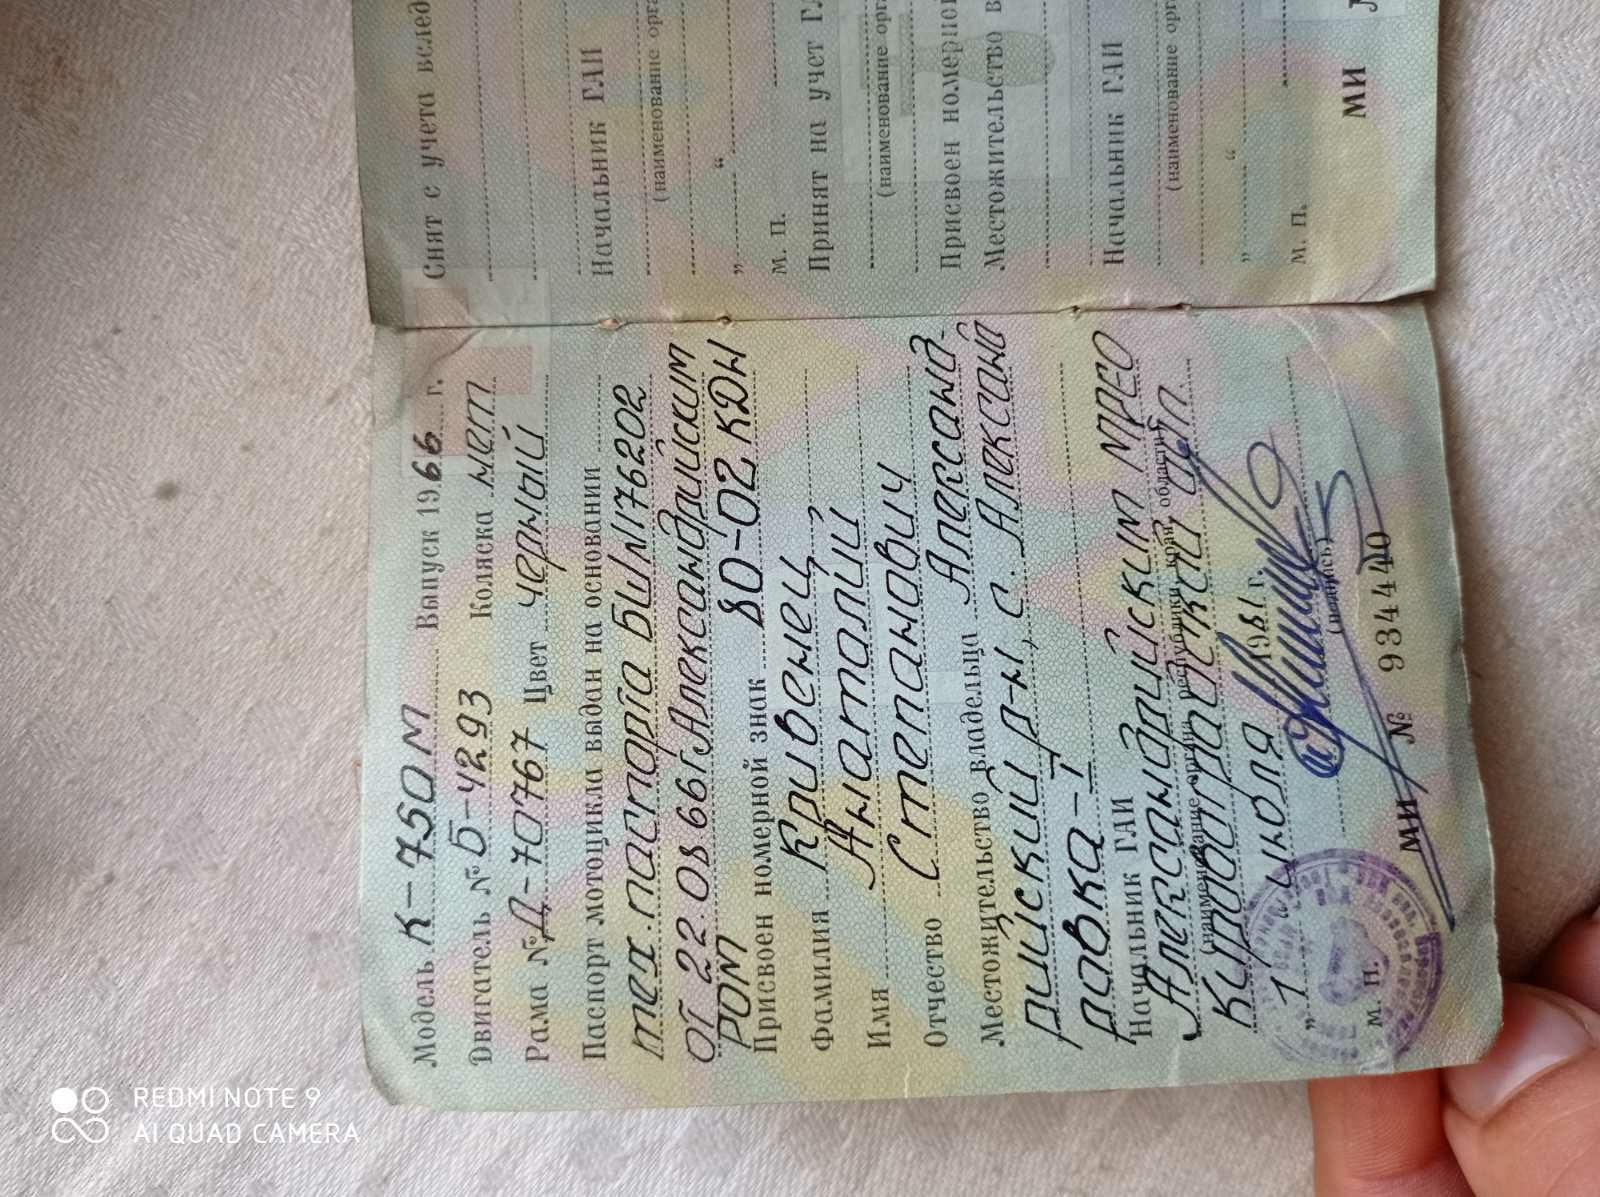 Модель К-750М Выпуск 1966 г.
Двигатель № Б-4293 Коляска нет
Рама № Д-70767 Цвет черный
Паспорт мотоцикла выдан на основании
тех.паспорта БШ №176202
от 22.08.66г Александрийским
РОМ
Присвоен номерной знак 80-02 КДН
Фамилия Кривенец
Имя Анаталий
Отчество Степанович
Местожительство владельца Александ-
рийский р-н, с. Александ
ровка-1
Начальник ГАИ
Александрийским МРЭО
(наименование органа, республики, края, области)
Кировоградской обл.
„ 1 “ июля 1981 г.
(подпись)
м. п.
МИ № 934440
Снят с учета вслед
Начальник ГАИ
(наименование орга
„ “
м. п.
Принят на учет ГА
(наименование орг
Присвоен номерной
Местожительство в
Начальник ГАИ
(наименование орг
„ “
м. п.
МИ
REDMI NOTE 9
AI QUAD CAMERA